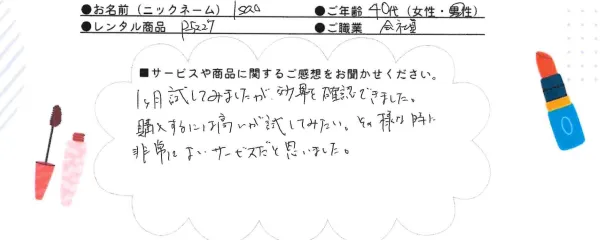 ●お名前（ニックネーム） Isao ●ご年齢 40代（女性・男性）
●レンタル商品 P5227 ●ご職業 会社員
■サービスや商品に関するご感想をお聞かせください。
1ヶ月試してみましたが、効果を確認できました。
購入するには高いが試してみたい。その様な時に
非常に良いサービスだと思いました。